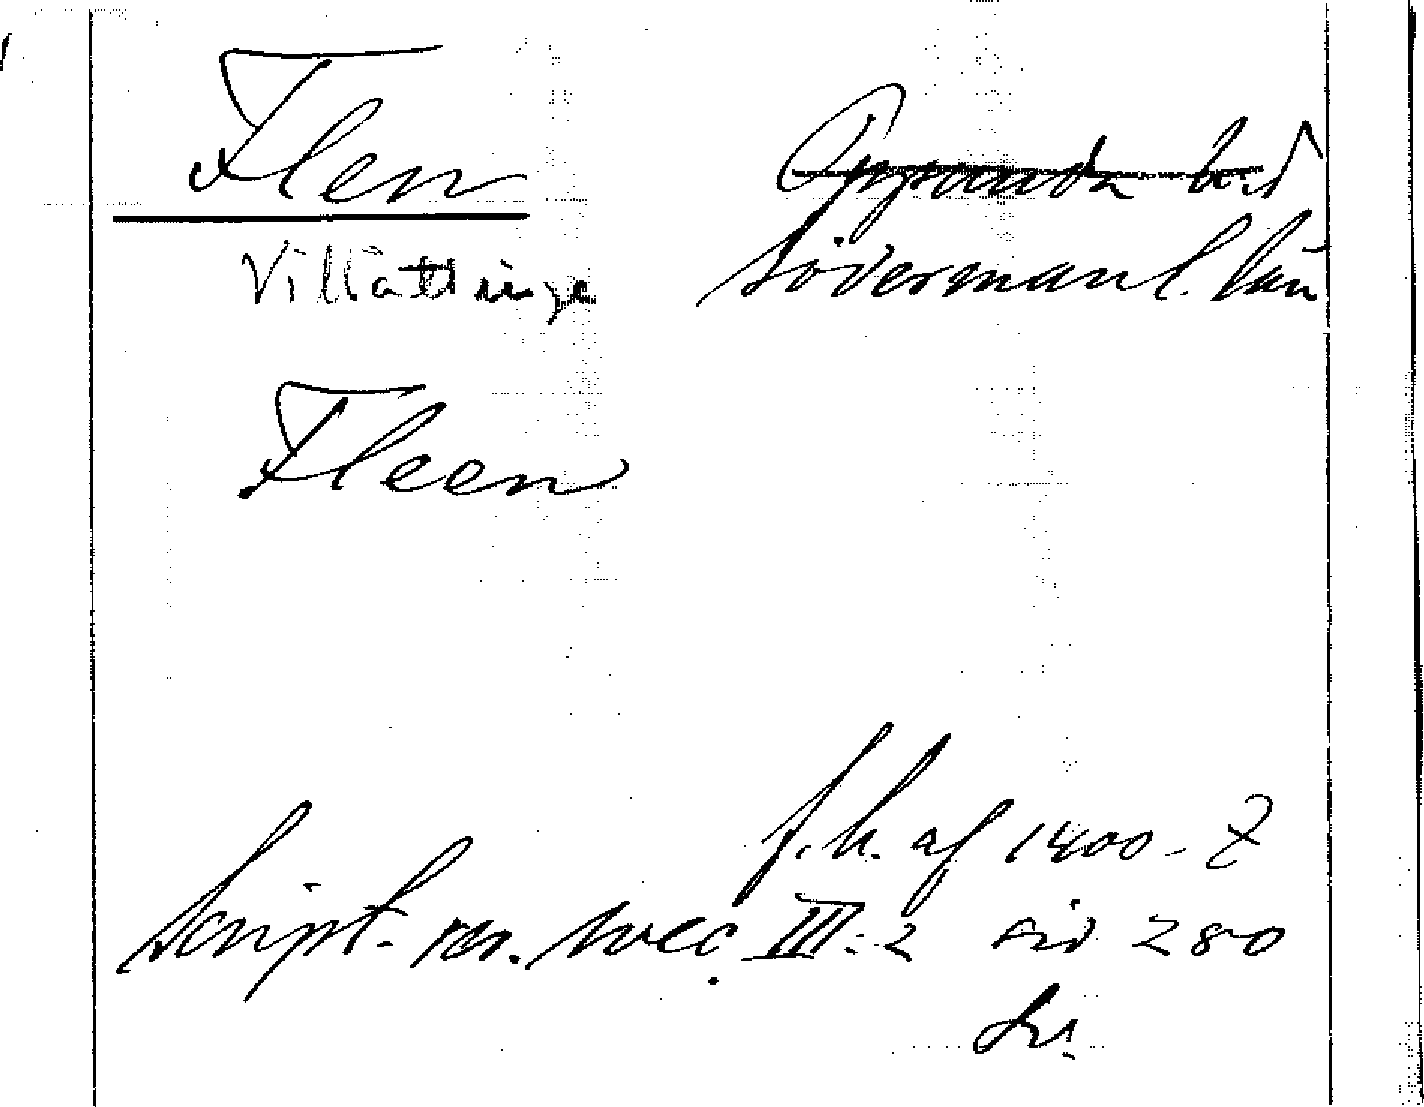 Flen
Oppunda hd
Villåttinge
Södermanl. län
Fleen
f. h. af 1400-t
Script. rer. svec. III: 2 sid 280